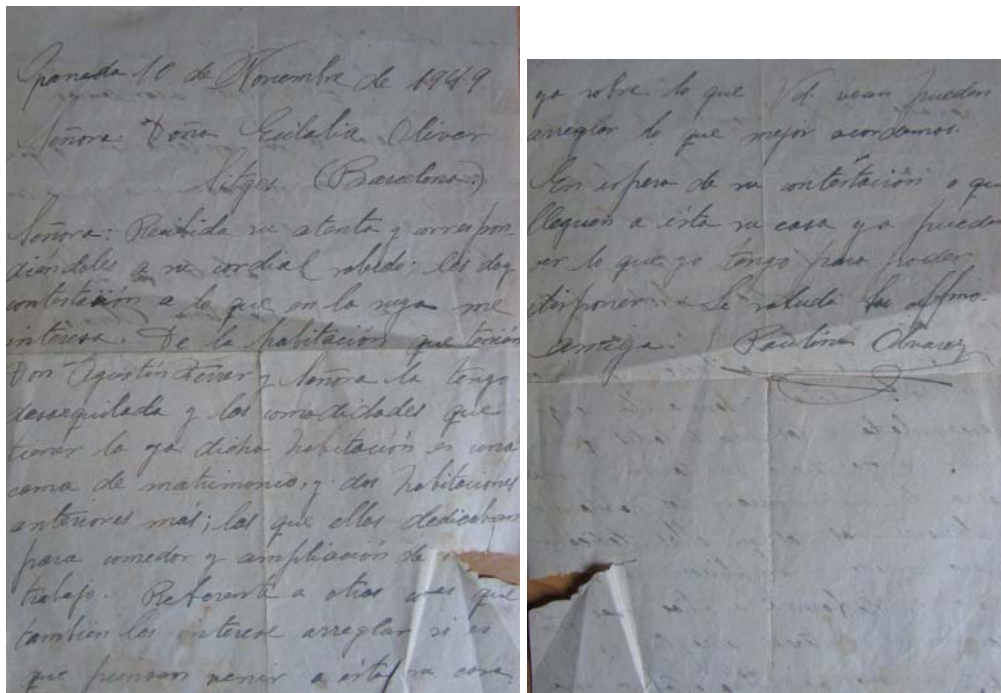 Granada 10 de Noviembre de 1949.
Señora Doña Eulalia Oliver
Sitges (Barcelona.)
Señora: Recibida su atenta y correspon-
diendoles a su cordial saludo; les doy
contestación a lo que en la suya me
interesa. De la habitación que tenian
Don Agustín Ferrer y Señora la tengo
desarquilada y las comodidades que
tienen la ya dicha habitación es una
cama de matrimonio, y dos habitaciones
anteriores mas; las que ellos dedicaban
para comedor y ampliación de
trabajo. Referente a otras cosas que
tambien les interese arreglar si es
que piensan venir a ésta su casa
ya sobre lo que Vd. vean pueden
arreglar lo que mejor acordamos.
En espera de su contestación o que
lleguen a ésta su casa ya pueden
ver lo que yo tengo para poder
disponer. Le saluda su affma
amiga. Paulina Alvarez